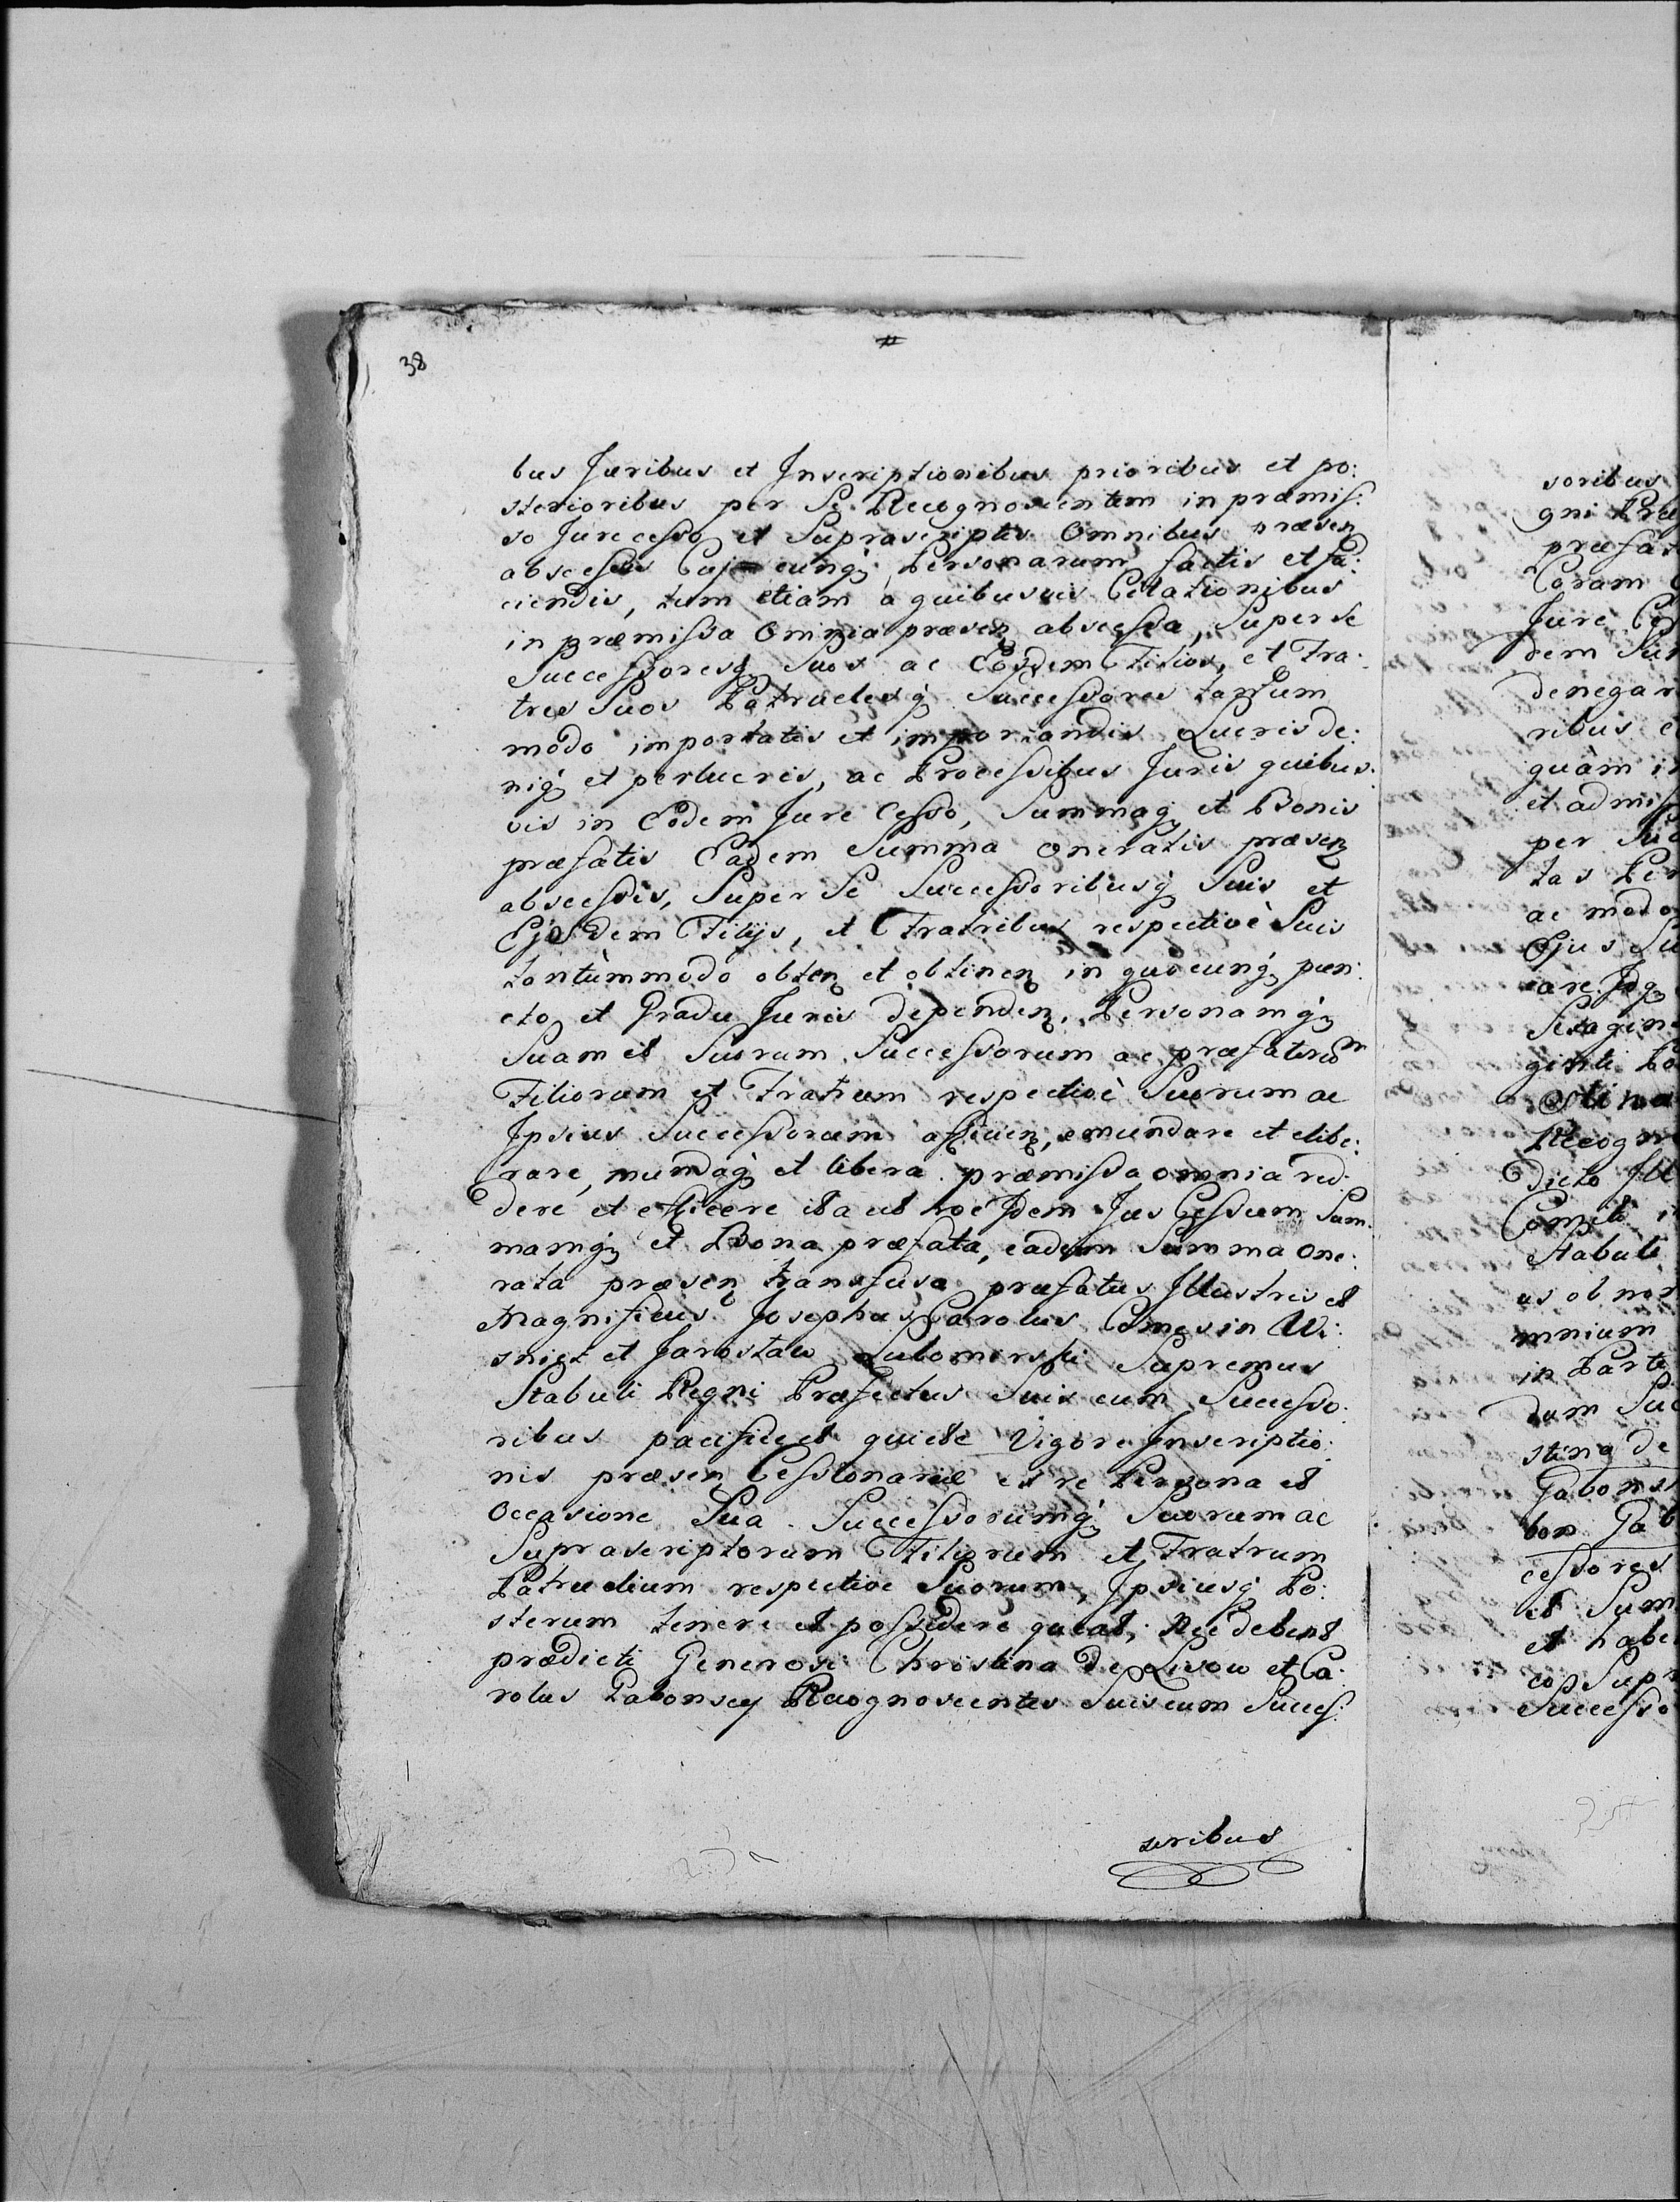 38
bus Juribus et Inscriptionibus prioribus et po:
sterioribus per Se Recognoscentem in præmis:
so Jure cesso et Suprascriptis Omnibus præsen
abscessis Cuj cunq; Personarum factis et fa:
ciendis, tum etiam a quibusvis Citationibus
in præmissa Omnia præsen abscessa, Super se
Successoresq; Suos ac Eosdem Filios, et Fra:
tres Suos Patrueles q; Successores tantum
modo importatis et importandis Lucris de:
niq; et perlucris, ac Processibus Juris quibus:
vis in Eodem Jure Cesso, Summaq; et Bonis
præfatis Eadem Summa oneratis præsen
abscessis, Super Se Successoribusq; Suis et
Ejusdem Filijs, et Fratribus respective Suis
tantummodo obten et obtinen in quocunq; pun:
cto et Gradu Juris dependen, Personamq;
Suam et Suorum Successorum ac præfatorum
Filiorum et Fratrum respectivè Suorum ac
Ipsius Successorum afficien, emundare et elibe:
rare, mundaq; et libera præmissa omnia red:
dere et efficere ita ut hoc Idem Jus Cessum Sum:
mamq; et Bona præfata, eadem Summa one:
rata præsen transfusa præfatus Illustris et
Magnificus Josephus Carolus Comes in Wi:
snicz et Jarosław Lubomirski Supremus
Stabuli Regni Præfectus Suis cum Successo:
ribus pacifice et quiete Vigore Inscriptio:
nis præsen Cessionariæ ex re Persona et
Occasione Sua Successorumq; Suorum ac
Suprascriptorum Filiorum et Fratrum
Patruelium respective Suorum, Ipsiusq; Po:
sterum tenere et possidere queat, Nec debent
prædicti Generosi Christina De Lisow et Ca:
rolus Gabonscy Recognoscentes Suis cum Succes:
soribus
soribus
gni Præ
præfat
Coram
Jure Ces
dem Sum
denegar
ribus e
quàm i
et admis
per
tas Per
ac modo
Ejus Su
care
Sexagin
ginti
stina
Recogn
Dicto Ill
Comiti i
Stabuli
us ob non
mnium
in Parte
dum Suc
stina de
Gabonsi
bon Gab
cessores
et Sum
et habe
co Supr
Successo